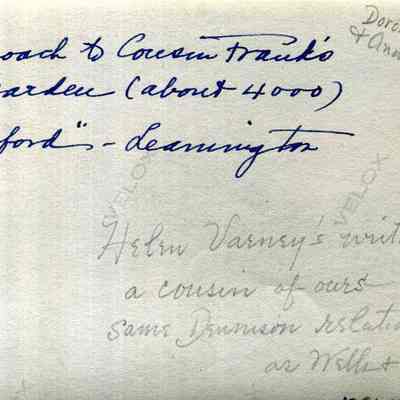 oach to Cousin Frank's
arden (about 4000)
ford" - Leamington
Doro
& Ann
VELOX
VELOX
Helen Varney's writ
a cousin of ours
same Dennison relatio
as Wells +